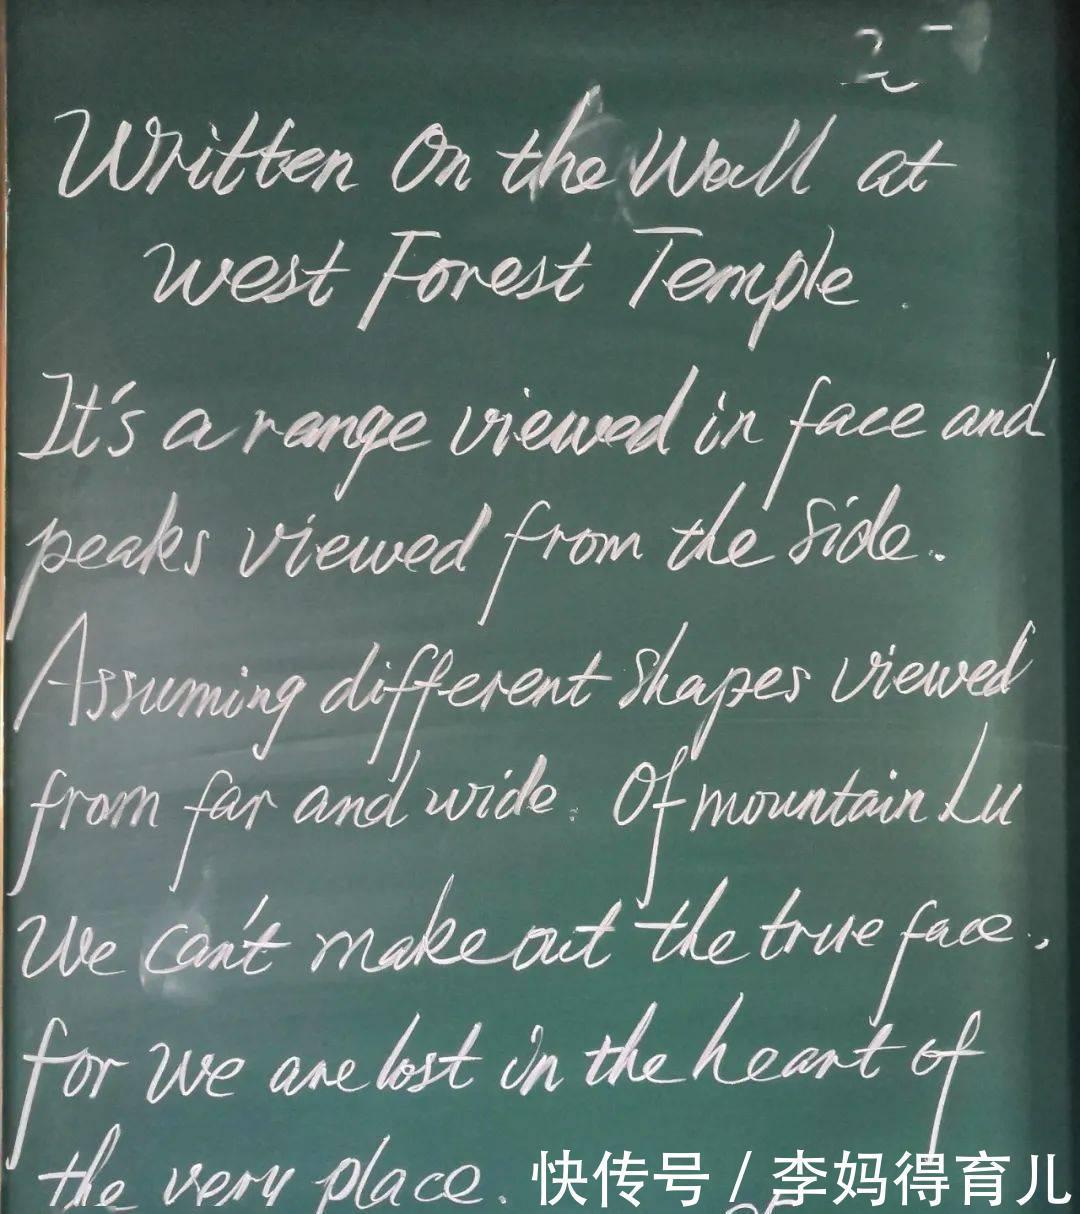 Written On the Wall at
West Forest Temple
It's a range viewed in face and
peaks viewed from the side.
Assuming different shapes viewed
from far and wide. Of mountain Lu
We can't make out the true face,
for we are lost in the heart of
the very place.
快传号 / 李妈得育儿